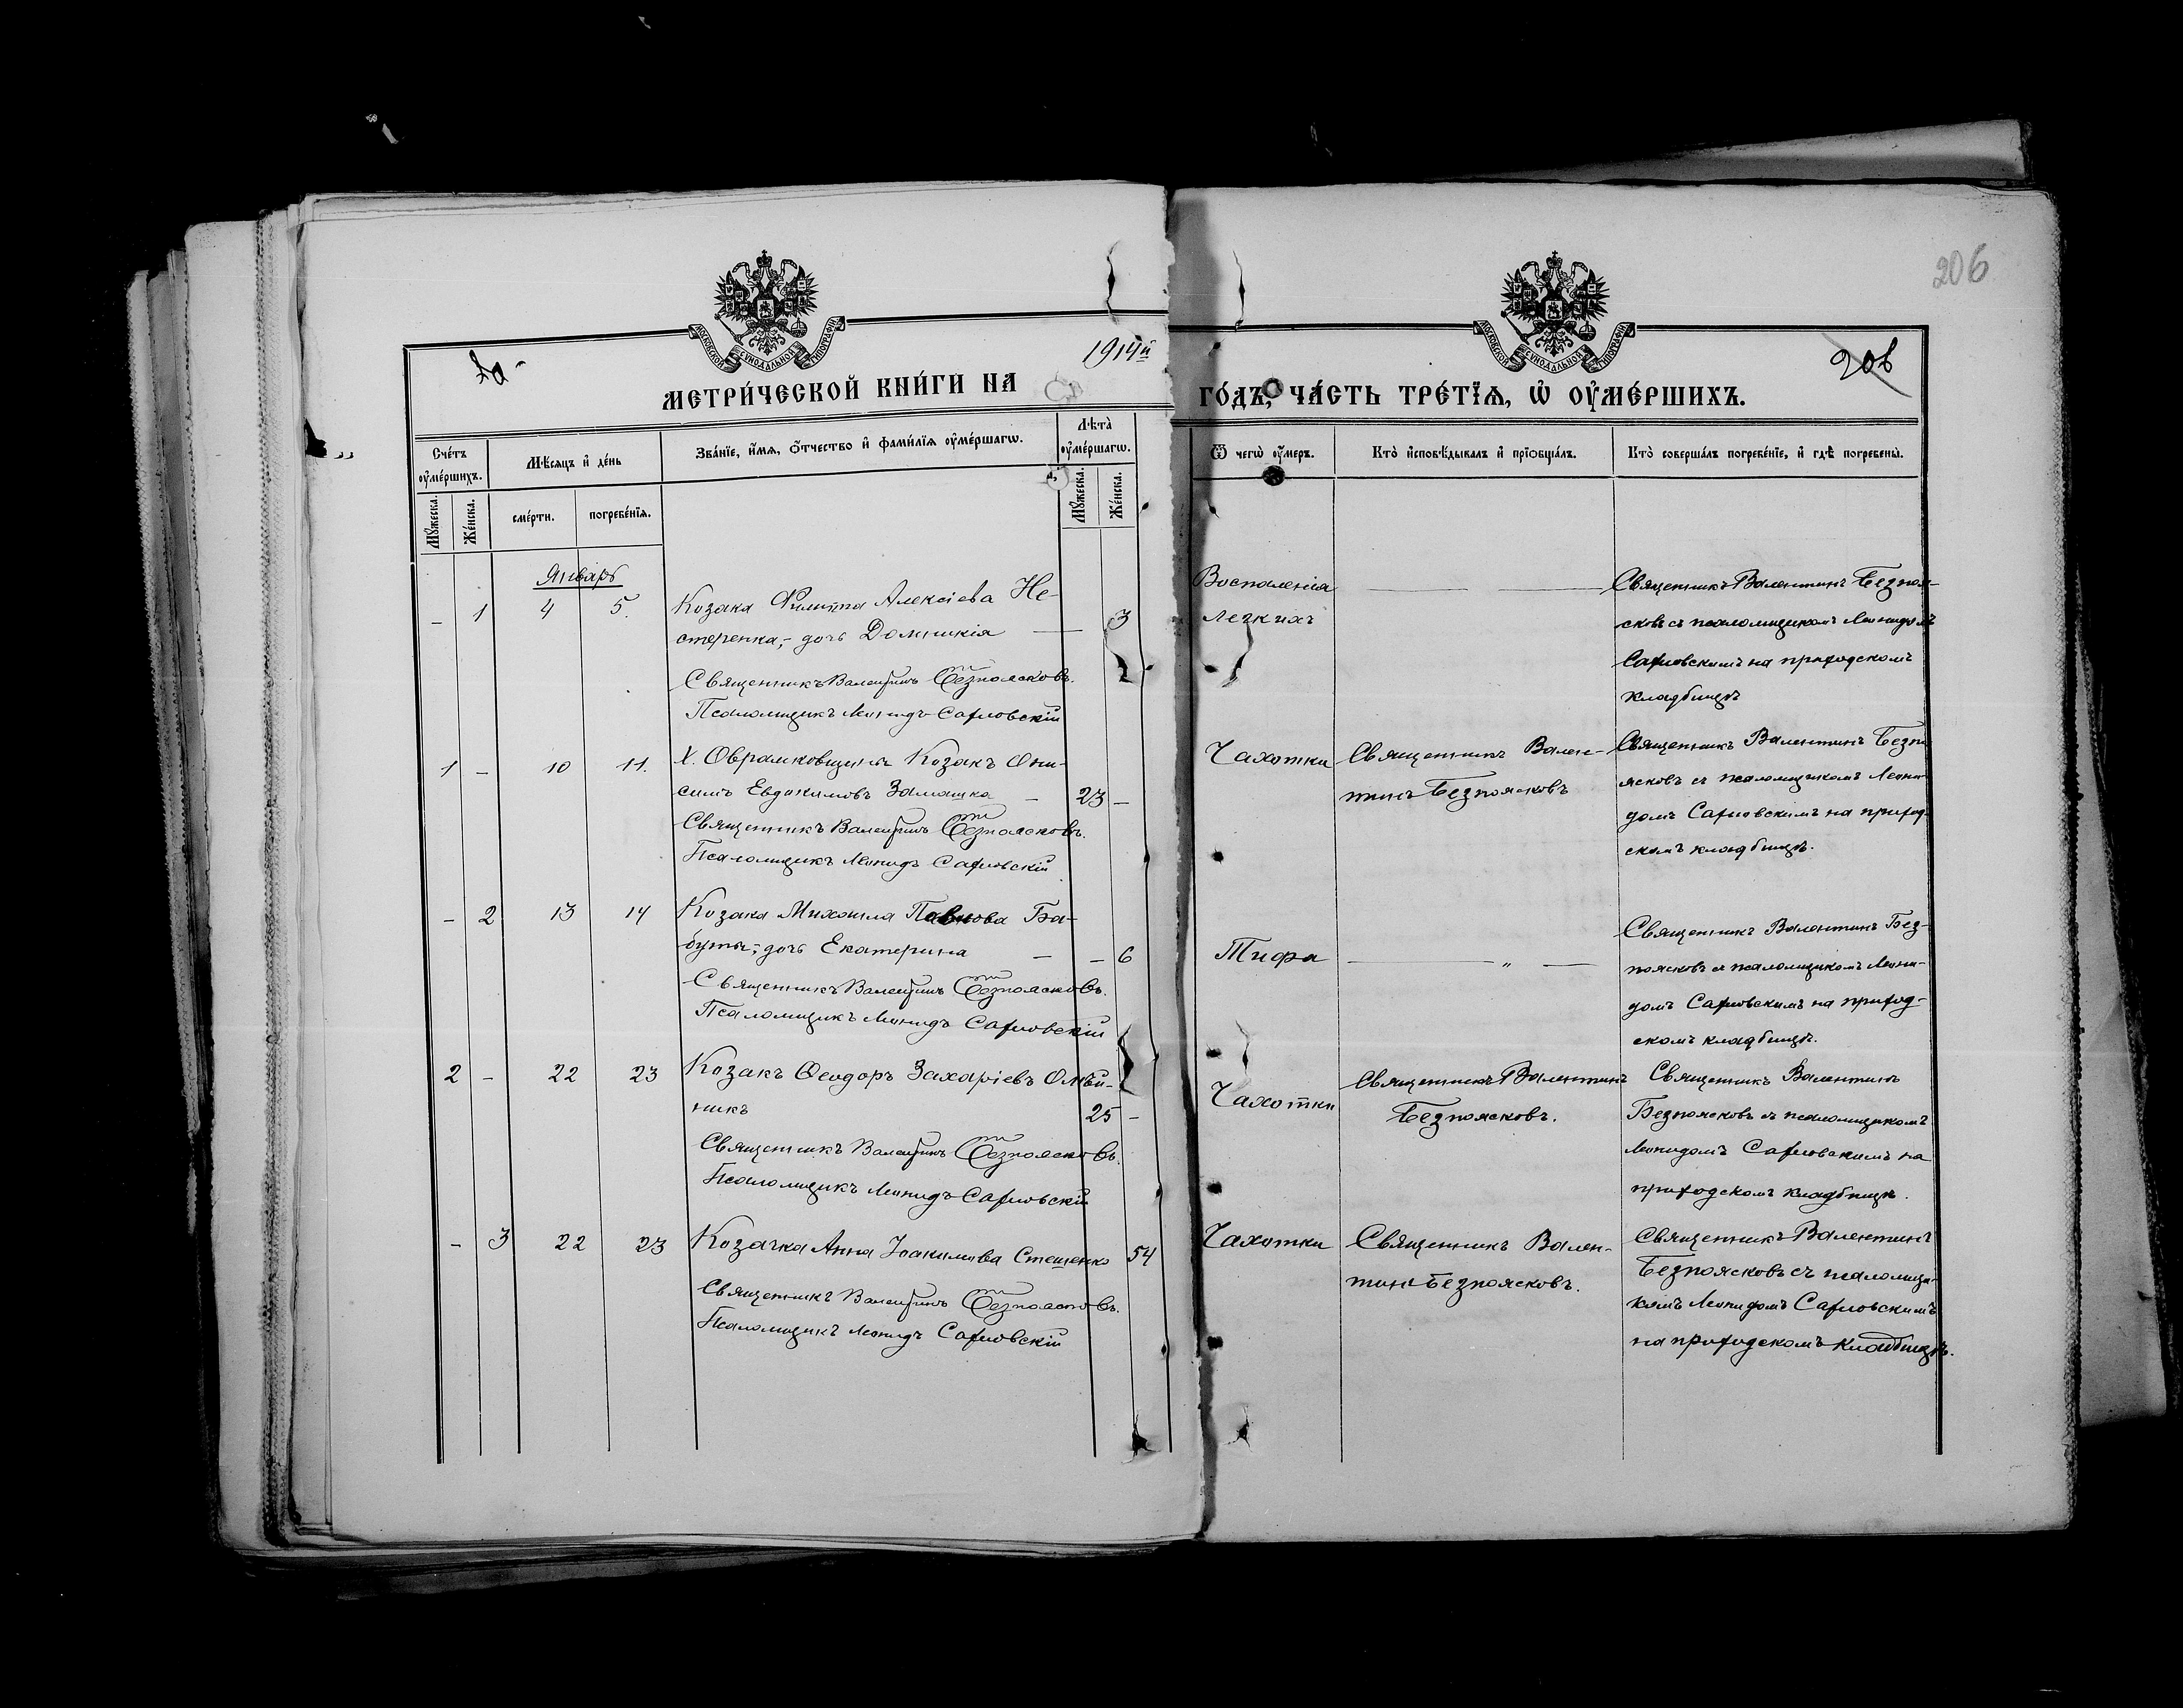 206
206
1914й
МОСКОВСКОЙ СѴНОДАЛЬНОЙ ТИПОГРАФІИ
МОСКОВСКОЙ СѴНОДАЛЬНОЙ ТИПОГРАФІИ
МЕТРИ́ЧЕСКОЙ КНИ́ГИ НА ГО́ДЪ, ЧА́СТЬ ТРЕ́ТЇѦ, Ѡ҆ ОУ҆МЕ́РШИХЪ.
Сче́тъ оу҆ме́ршихъ.
Мѣ́сѧцъ и҆ де́нь
Зва́нїе, и҆́мѧ, ѻ҆́тчество и҆ фами́лїѧ оу҆ме́ршагѡ.
Лѣ́та оу҆ме́ршагѡ.
Ѿ чегѡ̀ оу҆́меръ.
Кто̀ и҆сповѣ́дывалъ и҆ прїѡбща́лъ.
Кто̀ соверша́лъ погребе́нїе, и҆ гдѣ̀ погребены̀.
Мꙋ́жеска.
Же́нска.
сме́рти.
погребе́нїѧ.
Мꙋ́жеска.
Же́нска.
Январь
– 1 4 5.
Козака Филиппа Алексіева Не-
стеренка,- дочь Домникія — 3
Священникъ Валентинъ Безпоясковъ.
Псаломщикъ Леонидъ Сафновскій
Воспаленія
Легкихъ
Священникъ Валентинъ Безпоя-
сковъ съ псаломщикомъ Леонидомъ
Сафновскимъ на приходскомъ
кладбищѣ
1 – 10 11.
Х. Оврамковщина Козакъ Они-
симъ Евдокимовъ Замашка – 23 –
Священникъ Валентинъ Безпоясковъ.
Псаломщикъ Леонидъ Сафновскій
Чахотки
Священникъ Вален-
тинъ Безпоясковъ
Священникъ Валентинъ Безпо
ясковъ съ псаломщикомъ Леони-
домъ Сафновскимъ на приход-
скомъ кладбищѣ.
– 2 13 14
Козака Михаила Павлова Ба-
буты,- дочь Екатерина – – 6
Священникъ Валентинъ Безпоясковъ.
Псаломщикъ Леонидъ Сафновскій
Тифа
— „ —
Священникъ Валентинъ Без-
поясковъ съ псаломщикомъ Леони-
домъ Сафновскимъ на приход-
скомъ кладбищѣ.
2 – 22 23
Козакъ Ѳеодоръ Захаріевъ Олѣй-
никъ 25 –
Священникъ Валентинъ Безпоясковъ.
Псаломщикъ Леонидъ Сафновскій
Чахотки
Священникъ Валентинъ
Безпоясковъ.
Священникъ Валентинъ
Безпоясковъ съ псаломщикомъ
Леонидомъ Сафновскимъ на
приходскомъ кладбищѣ.
– 3 22 23
Козачка Анна Іоакимова Стешенко 54
Священникъ Валентинъ Безпоясковъ.
Псаломщикъ Леонидъ Сафновскій
Чахотки
Священникъ Вален-
тинъ Безпоясковъ.
Священникъ Валентинъ
Безпоясковъ съ псаломщи-
комъ Леонидомъ Сафновскимъ
на приходскомъ кладбищѣ.